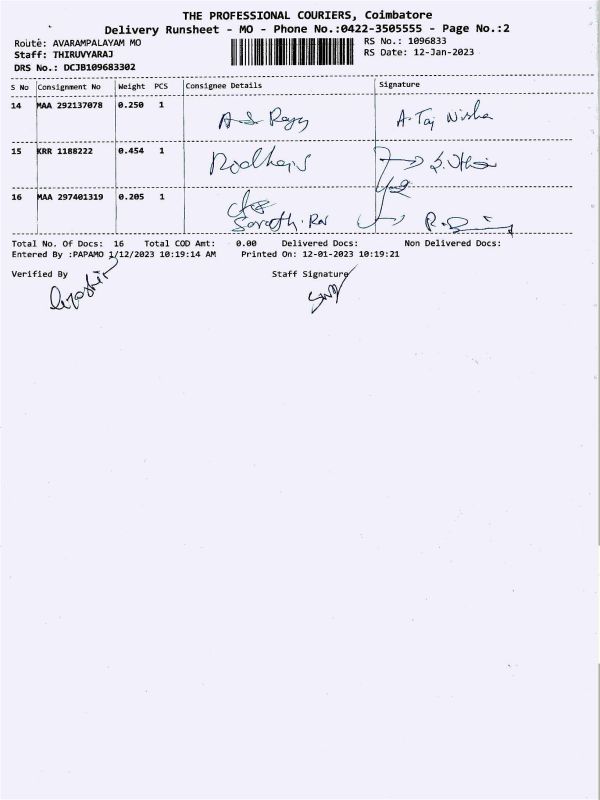 THE PROFESSIONAL COURIERS, Coimbatore
Delivery Runsheet - MO - Phone No.:0422-3505555 - Page No.:2
Route: AVARAMPALAYAM MO RS No.: 1096833
Staff: THIRUVYARAJ RS Date: 12-Jan-2023
DRS No.: DCJB109683302
S No Consignment No Weight PCS Consignee Details Signature
14 MAA 292137078 0.250 1 A. Taj Nisha
15 KRR 1188222 0.454 1
16 MAA 297401319 0.205 1
Total No. Of Docs: 16 Total COD Amt: 0.00 Delivered Docs: Non Delivered Docs:
Entered By :PAPAMO 1/12/2023 10:19:14 AM Printed On: 12-01-2023 10:19:21
Verified By Staff Signature